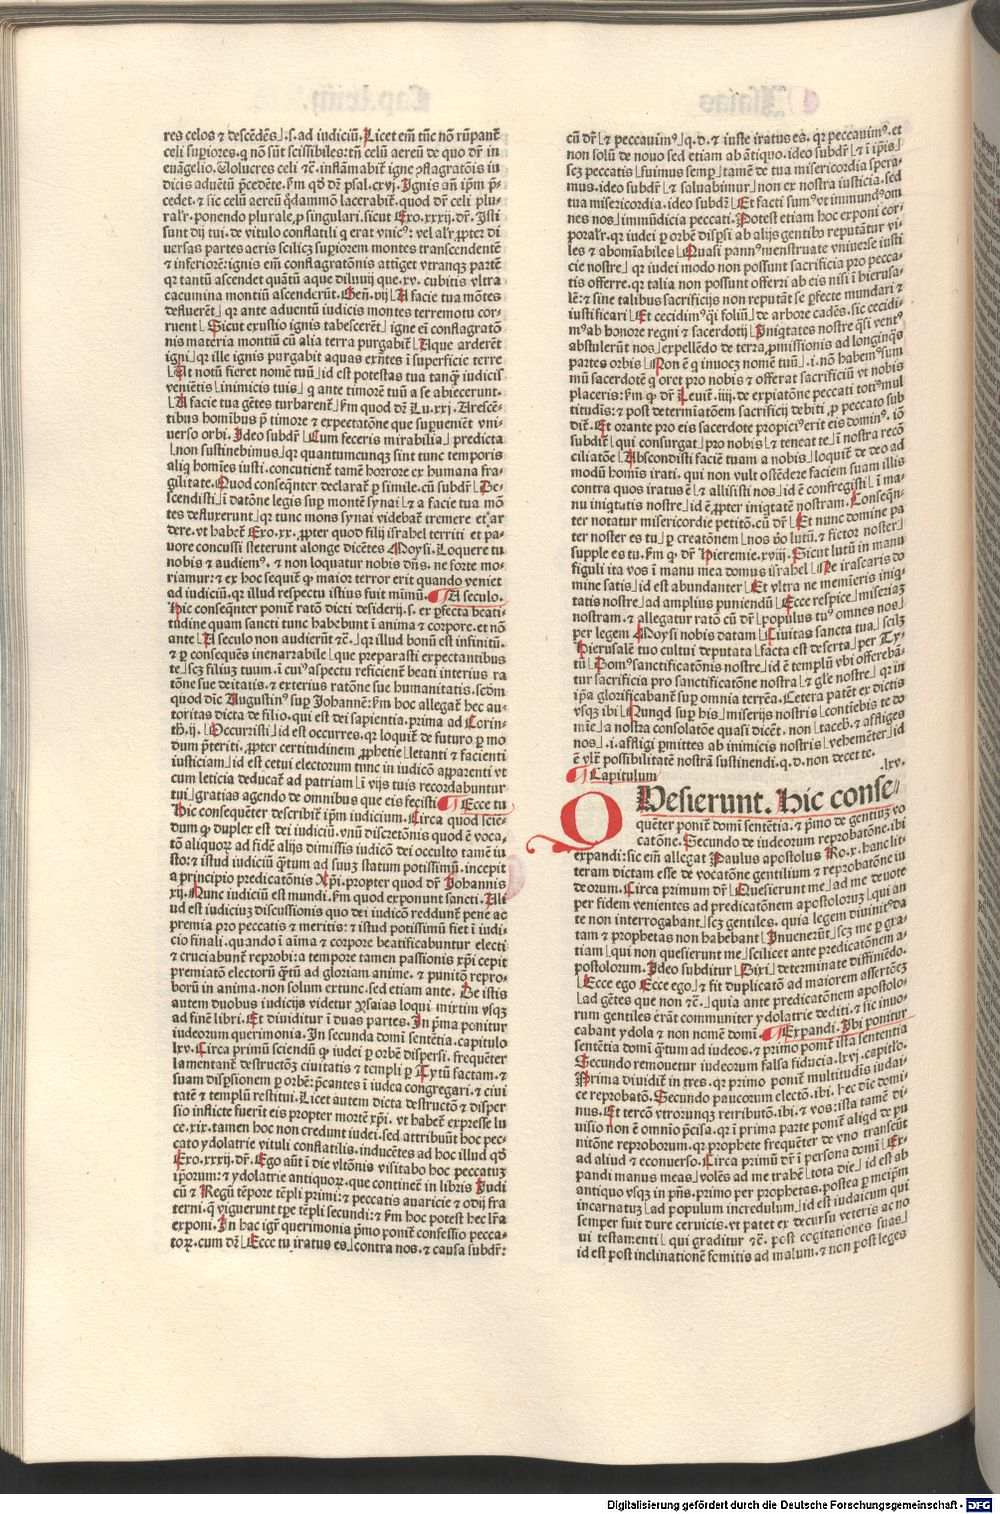 res celos ⁊ descēdēs⌋.s. ad iudiciū. Licet em̄ tūc nō rūpant᷑
celi superiores. q̄ nō sūt scissibiles: tn̄ celū aereū de quo dr̄ in
euāgelio. Uolucres celi ⁊c̄. inflāmabit᷑ igne ꝯflagratōnis iu
dicis aduētū p̄cedēte. ẜm qd̄ dr̄ psal. cxvj. Ignis an̄ ip̄m p̄-
cedet. ⁊ sic celū aereū q̄dāmō lacerabit᷑. quod dr̄ celi plu-
ralr̄. ponendo plurale ꝓ singulari. sicut Exo. xxxij. dr̄. Isti
sunt dij tui. de vitulo conflatili q̄ erat vnicꝰ: vel alr̄ ꝓpter di
uersas partes aeris scilicꝫ superiorem montes transcendentē
⁊ inferiorē: ignis em̄ conflagratōnis attīget vtranqꝫ partē
qr tantū ascendet quātū aque diluuij que. xv. cubitis vltra
cacumina montiū ascenderūt. Gen̄. vij⌊A facie tua mōtes
defluerēt⌋ qr ante aduentū iudicis montes terremotu cor-
ruent⌊Sicut exustio ignis tabescerēt⌋ igne em̄ conflagratō
nis materia montiū cū alia terra purgabit᷑⌊Aque arderēt
igni⌋ qr ille ignis purgabit aquas exn̄tes ī superficie terre
⌊Ut notū fieret nomē tuū⌋ id est potestas tua tanqꝫ iudicis
veniētis⌊inimicis tuis⌋ q̄ ante timorē tuū a se abiecerunt.
⌊A facie tua gētes turbarent᷑⌋ ẜm quod dr̄ Lu. xxj. Arescē-
tibus homībus p̄ timore ⁊ expectatōne que superueniēt vni-
uerso orbi. Ideo subdit᷑⌊Cum feceris mirabilia⌋ predicta
⌊non sustinebimus⌋ qr quantumcunqꝫ sint tunc temporis
aliq̄ homīes iusti. concutient᷑ tamē horrore ex humana fra-
gilitate. Quod conseqn̄ter declarat᷑ p simile. cū subdit᷑⌊De-
scendisti⌋ ī datōne legis sup montē synai⌊⁊ a facie tua mō
tes defluxerunt⌋ qr tunc mons synai videbat᷑ tremere et ar
dere. vt habet᷑ Exo. xx. ꝓpter quod filij israhel territi et pa-
uore concussi steterunt alonge dicētes Moysi. Loquere tu
nobis ⁊ audiemꝰ. ⁊ non loquatur nobis dn̄s. ne forte mo-
riamur: ⁊ ex hoc sequit᷑ ꝙ maior terror erit quando veniet
ad iudiciū. qr illud respectu istius fuit mīmū. ¶ A seculo.
Hic conseqn̄ter ponit᷑ ratō dicti desiderij. s. ex ꝑfecta beati-
tudine quam sancti tunc habebunt ī anima ⁊ corpore. et nō
ante⌊A seculo non audierūt ⁊c̄.⌋ qr illud bonū est infinitū.
⁊ ꝑ consequēs inenarrabile⌊que preparasti expectantibus
te⌋ scꝫ filiuꝫ tuum. ī cuiꝰ aspectu reficient᷑ beati interius ra
tōne sue deitatis. ⁊ exterius ratōne sue humanitatis. scdm
quod dic̄ Augustinꝰ sup Johannē: ẜm hoc allegat᷑ hec au-
toritas dicta de filio. qui est dei sapientia. prima ad Corin-
th. ij. ⌊Occurristi⌋ id est occurres. qr loquit᷑ de futuro p mo
dum p̄teriti. ꝓpter certitudinem ꝓphetie⌊letanti ⁊ facienti
iusticiam⌋ id est cetui electorum tunc in iudicō apparenti vt
cum leticia deducat᷑ ad patriam⌊ī vijs tuis recordabuntur
tui⌋ gratias agendo de omnibus que eis fecisti ¶ Ecce tu
Hic consequēter describit᷑ ip̄m iudicium. Circa quod sciē-
dum ꝙ duplex est dei iudiciū. vnū discretōnis quod ē voca-
tō aliquoꝝ ad fidē alijs dimissis iudicō dei occulto tamē iu
sto: ⁊ istud iudiciū q̄tum ad suuꝫ statum potissimū. incepit
a principio predicatōnis Xp̄i. propter quod dr̄ Johannis
xij. Nunc iudiciū est mundi. ẜm quod exponunt sancti. Ali
ud est iudiciuꝫ discussionis quo dei iudicō reddunt᷑ pene ac
premia pro peccatis ⁊ meritis: ⁊ istud potissimū fiet ī iudi-
cio finali. quando ī aīma ⁊ corpore beatificabuntur electi
⁊ cruciabunt᷑ reprobi: a tempore tamen passionis xp̄i cepit
premiatō electorū q̄tū ad gloriam anime. ⁊ punitō repro-
borū in anima. non solum extunc. sed etiam ante. De istis
autem duobus iudicijs videtur ysaias loqui mixtim vsqꝫ
ad finē libri. Et diuiditur ī duas partes. In p̄ma ponitur
iudeorum querimonia. In secunda domī sentētia. capitulo
lxv. Circa primū sciendū ꝙ iudei p orbē dispersi. frequēter
lamentant᷑ destructōꝫ ciuitatis ⁊ templi p Tytū factam. ⁊
suam dispsionem p orbē: p̄cantes ī iudea congregari. ⁊ ciui
tatē ⁊ templū restitui. Licet autem dicta destructō ⁊ disper
sio inflicte fuerīt eis propter mortē xp̄i. vt habet᷑ expresse lu
ce. xix. tamen hoc non credunt iudei. sed attribuūt hoc pec-
cato ydolatrie vituli conflatilis. inducētes ad hoc illud qd̄
Exo. xxxij. dr̄. Ego aūt ī die vltōnis visitabo hoc peccatuꝫ
iporum: ⁊ ydolatrie antiquoꝝ. que continet᷑ in libris Judi
cū ⁊ Regū tēpore tēpli primi: ⁊ peccatis auaricie ⁊ odij fra
terni. q̄ viguerunt tpe tēpli secundi: ⁊ ẜm hoc potest hec lr̄a
exponi. In hac igit᷑ querimonia p̄mo ponit᷑ confessio pecca-
toꝝ. cum dr̄⌊Ecce tu iratus es⌋ contra nos. ⁊ causa subdit᷑:
cū dr̄⌊⁊ peccauimꝰ⌋ q. d. ⁊ iuste iratus es. qr peccauimꝰ. et
non solū de nouo sed etiam ab ātiquo. ideo subdit᷑⌊ī ip̄is⌋
scꝫ peccatis⌊fuimus semp⌋ tamē de tua misericordia spera-
mus. ideo subdit᷑⌊⁊ saluabimur⌋ non ex nostra iusticia. sed
tua misericordia. ideo subdit᷑⌊Et facti sumꝰ vt immundꝰ om
nes nos⌋ immūdicia peccati. Potest etiam hoc exponi cor-
poralr̄. qr iudei p orbē dispsi ab alijs gentibꝫ reputātur vi-
les ⁊ abomīabiles⌊Quasi pannꝰ menstruate vniuerse iusti
cie nostre⌋ qr iudei modo non possunt sacrificia pro pecca-
tis offerre. qr talia non possunt offerri ab eis nisi ī hierusa-
lē: ⁊ sine talibus sacrificijs non reputāt se ꝑfecte mundari ⁊
iustificari⌊Et cecidimꝰ q̄si foliū⌋ de arbore cadēs. sic cecidi-
mꝰ ab honore regni ⁊ sacerdotij⌊Iniqtates nostre q̄si ventꝰ
abstulerūt nos⌋ expellēdo de terra ꝓmissionis ad longinq̄s
partes orbis⌊Non ē q̄ inuocꝫ nomē tuū⌋ .i. nō habemꝰ sum
mū sacerdotē q̄ oret pro nobis ⁊ offerat sacrificiū vt nobis
placeris: ẜm ꝙ dr̄ Leuit᷑. iiij. de expiatōne peccati totiꝰ mul
titudīs: ⁊ post determīatōem sacrificij debiti ꝓ peccato sub
dit᷑. Et orante pro eis sacerdote propiciꝰ erit eis dominꝰ. iō
subdit᷑⌊qui consurgat⌋ pro nobis⌊⁊ teneat te⌋ ī nostra recō
ciliatōe⌊Abscondisti faciē tuam a nobis⌋ loquit᷑ de deo ad
modū homīs irati. qui non vult ostēdeẽ faciem suam illis
contra quos iratus ē⌊⁊ allisisti nos⌋ id ē confregisti⌊ī ma-
nu iniqtatis nostre⌋ id ē ꝓpter iniqtatē nostram. Conseqn̄-
ter notatur misericordie petitō. cū dr̄⌊Et nunc domine pa
ter noster es tu⌋ p creatōnem⌊nos v̊o lutū. ⁊ fictor noster⌋
supple es tu. ẜm ꝙ dr̄ Hieremie. xviij. Sicut lutū in manu
figuli ita vos ī manu mea domus israhel⌊Ne irascaris do
mine satis⌋ id est abundanter⌊Et vltra ne memīeris iniq̄-
tatis nostre⌋ ad amplius puniendū⌊Ecce respice⌋ miseriaꝫ
nostram. ⁊ allegatur ratō cū dr̄⌊populus tuꝰ omnes nos⌋
per legem Moysi nobis datam⌊Ciuitas sancta tua⌋ scilꝫ
Hierusalē tuo cultui deputata⌊facta est deserta⌋ per Ty-
tū⌊Domꝰ sanctificatōnis nostre⌋ id ē templū vbi offerebā-
tur sacrificia pro sanctificatōne nostra⌊⁊ gl̄e nostre⌋ qr in
ip̄a glorificabant᷑ sup omnia terrēa. Cetera patēt ex dictis
vsqꝫ ibi⌊Nunqd sup his⌋ miserijs nostris⌊contīebis te do
mīe⌋ a nostra consolatōe quasi dicēt. non⌊taceb. ⁊ affliges
nos⌋ .i. affligi pmittes ab inimicis nostris⌊vehemēter⌋ id
ē vlt᷑ possibilitatē nostrā sustinendi. q. d. non decet te.
¶ Capitulum .lxv.
QUesierunt. Hic conse-
quēter ponit᷑ domī sentētia. ⁊ p̄mo de gentiuꝫ vo
catōne. Secundo de iudeorum reprobatōne. ibi
expandi: sic em̄ allegat Paulus apostolus Ro. x. hanc lit-
teram dictam esse de vocatōne gentilium ⁊ reprobatōne iu
deorum. Circa primum dr̄⌊Quesierunt me⌋ ad me deuote
per fidem venientes ad predicatōnem apostoloruꝫ⌊qui an
te non interrogabant⌋ scꝫ gentiles. quia legem diuinitꝰ da
tam ⁊ prophetas non habebant⌊Inuenerūt⌋ scꝫ me p gra-
tiam⌊qui non quesierunt me⌋ scilicet ante predicatōnem a-
postolorum. Ideo subditur⌊Dixi⌋ determinate diffiniēdo.
⌊Ecce ego Ecce ego⌋ ⁊ fit duplicatō ad maiorem assertōeꝫ
⌊ad gētes que non ⁊c̄.⌋ quia ante predicatōnem apostolo-
rum gentiles erāt communiter ydolatrie dediti. ⁊ sic inuo-
cabant ydola ⁊ non nomē domī. ¶ Expandi. Ibi ponitur
sentētia domī q̄tum ad iudeos. ⁊ primo ponit᷑ ista sententia
Secundo remouetur iudeorum falsa fiducia. lxvj. capitlō.
Prima diuidit᷑ in tres. qr primo ponit᷑ multitudīs iudai-
ce reprobatō. Secundo paucorum electō. ibi. hec dic̄ domi-
nus. Et tercō vtrorunqꝫ retributō. ibi. ⁊ vos: ista tamē di-
uisio non ē omnīo p̄cisa. qr ī prima parte ponit᷑ aliqd de pu
nitōne reproborum. qr prophete frequēter de vno transeūt
ad aliud ⁊ econuerso. Circa primū dr̄ ī persona domī⌊Ex-
pandi manus meas⌋ volēs ad me trahē⌊tota die⌋ id est ab
antiquo vsqꝫ in pn̄s. primo per prophetas. postea p meip̄m
incarnatuꝫ⌊ad populum incredulum⌋ id est iudaicum qui
semper fuit dure ceruicis. vt patet ex decursu veteris ac no
ui testamenti⌊qui graditur ⁊c̄. post cogitationes suas⌋
id est post inclinationē fomitis ad malum. ⁊ non post leges
Digitalisierung gefördert durch die Deutsche Forschungsgemeinschaft - DFG